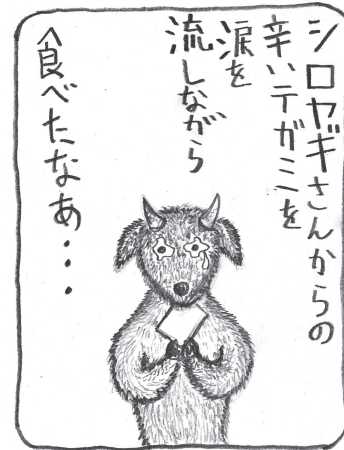 シロヤギさんからの
辛いテガミを
涙を
流しながら
食べたなあ・・・